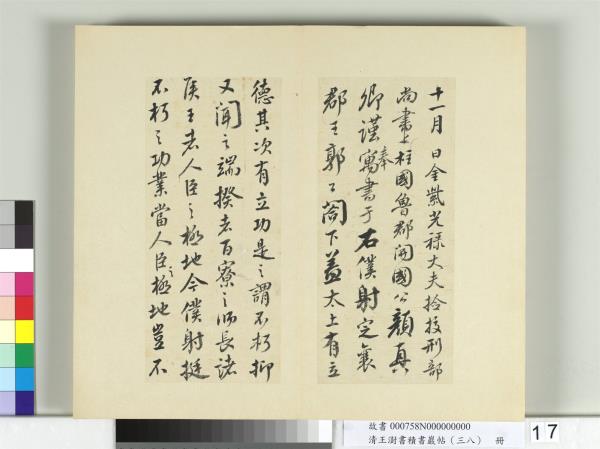 十一月 日金紫光祿大夫撿挍刑部
尚書上柱國魯郡開國公顏真
卿謹奉寓書于右僕射定襄
郡王郭公閤下蓋太上有立
德其次有立功是之謂不朽抑
又聞之端揆者百寮之師長諸
侯王者人臣之極地今僕射挺
不朽之功業當人臣之極地豈不
故書 000758N000000000
清王澍書積書巖帖（三八） 冊
17